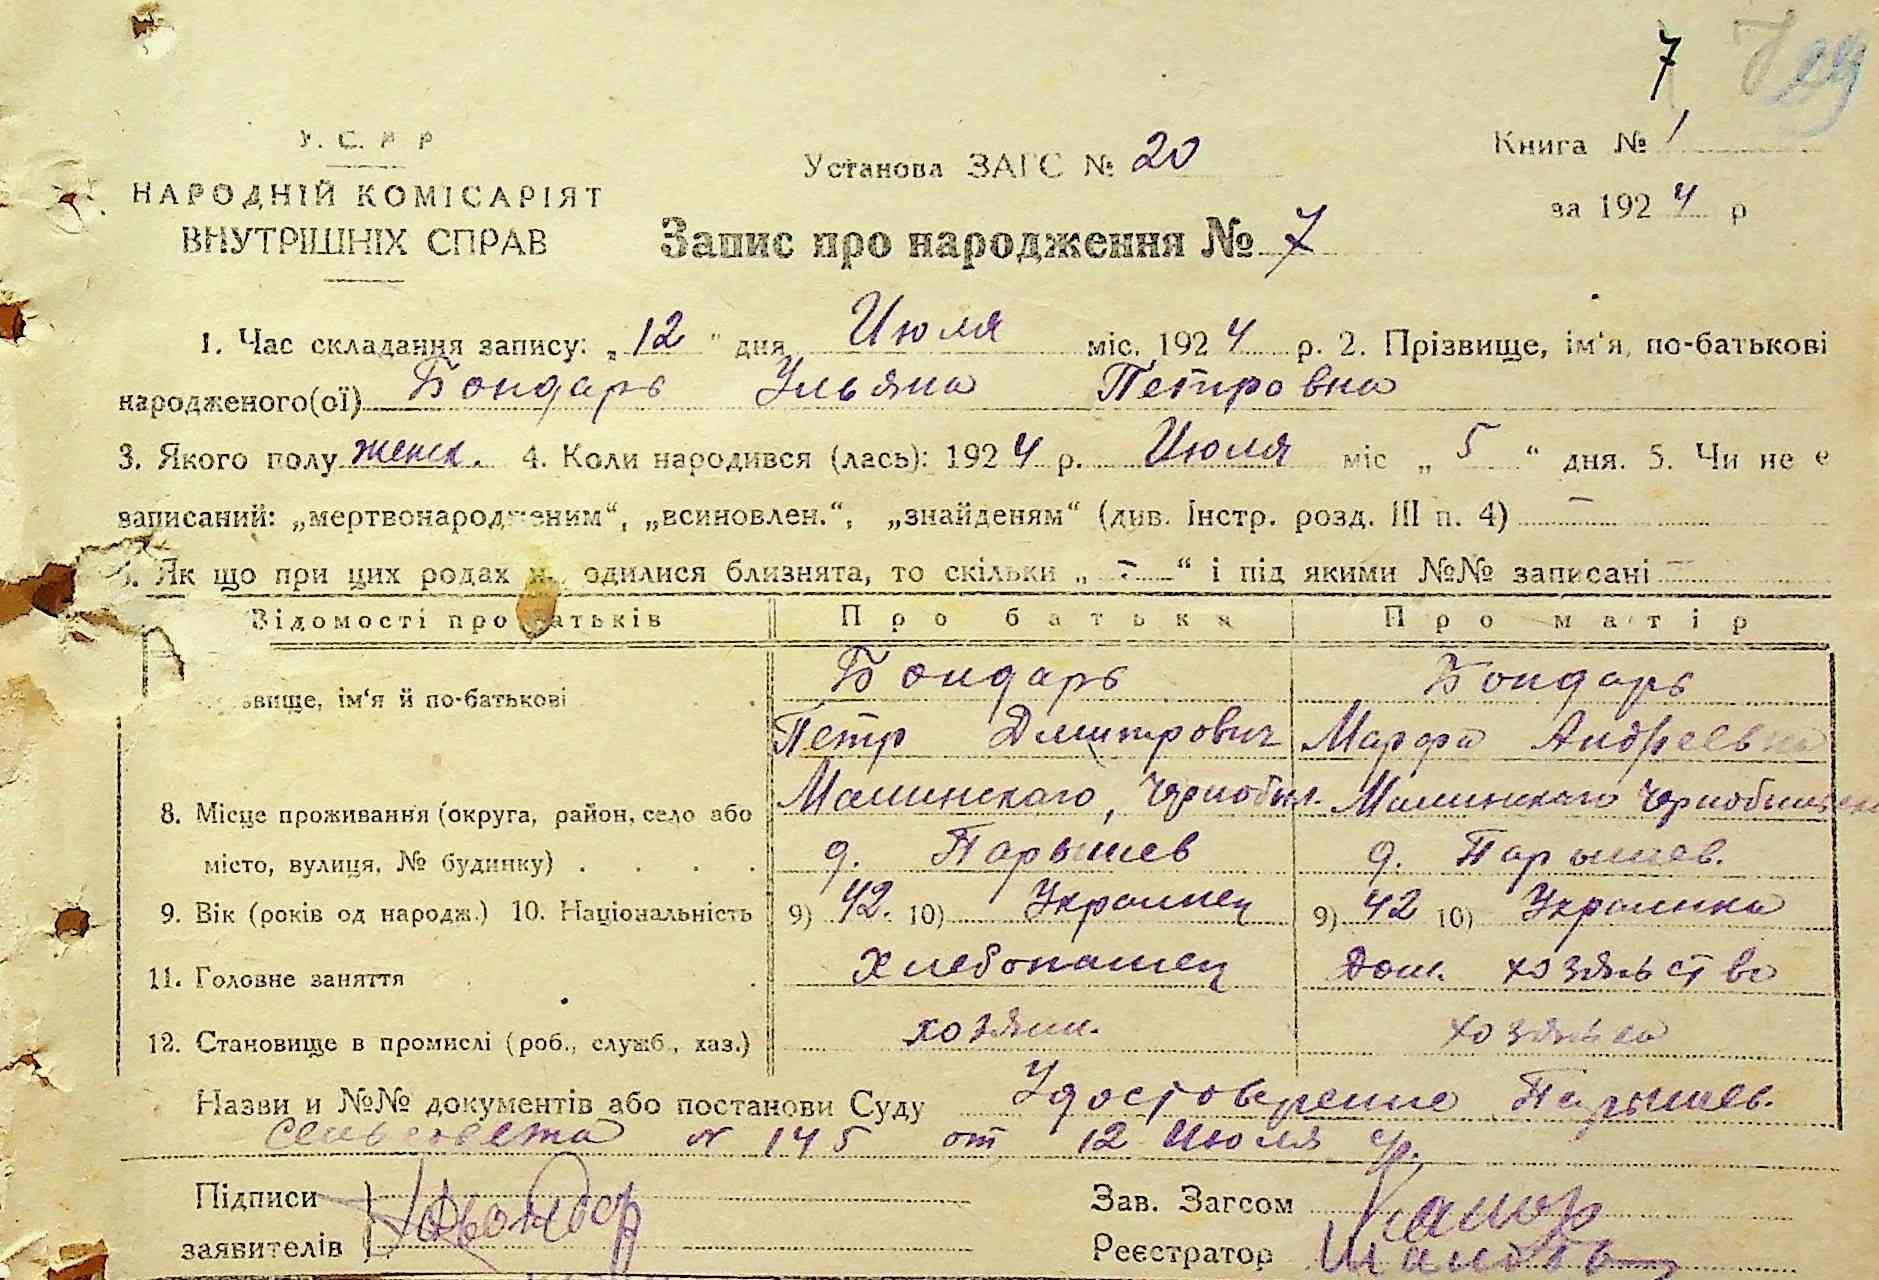 7
У. С. Р. Р.
НАРОДНІЙ КОМІСАРІЯТ
ВНУТРІШНІХ СПРАВ
Установа ЗАГС № 20
Книга № 1
за 1924 р
Запис про народження № 7
1. Час складання запису: „12" дня Июля міс. 1924 р. 2. Прізвище, ім'я, по-батькові
народженого(ої) Бондарь Ульяна Петровна
3. Якого полу женск. 4. Коли народився (лась): 1924 р. Июля міс „5" дня. 5. Чи не є
записаний: „мертвонародженим“, „всиновлен.“, „знайденям“ (див. інстр. розд. III п. 4) —
Як що при цих родах одилися близнята, то скільки „—“ і під якими №№ записані —
Відомості про батьків Про батька Про матір
звище, ім'я й по-батькові Бондарь Бондарь
Петр Дмитрович Марфа Андреевна
8. Місце проживання (округа, район, село або Малинского, Чернобыл. Малинского Чернобыльск
місто, вулиця, № будинку) . . . . д. Парышев д. Парышев.
9. Вік (років од народж.) 10. Національність 9) 42. 10) Украинец 9) 42 10) Украинка
11. Головне заняття хлебопашец Дом. хозяйство
12. Становище в промислі (роб., служб., хаз.) хозяин. хозяйка
Назви и №№ документів або постанови Суду Удостоверение Парышев.
сельсовета № 145 от 12 Июля с/г.
Підписи
Зав. Загсом
заявителів
Реєстратор